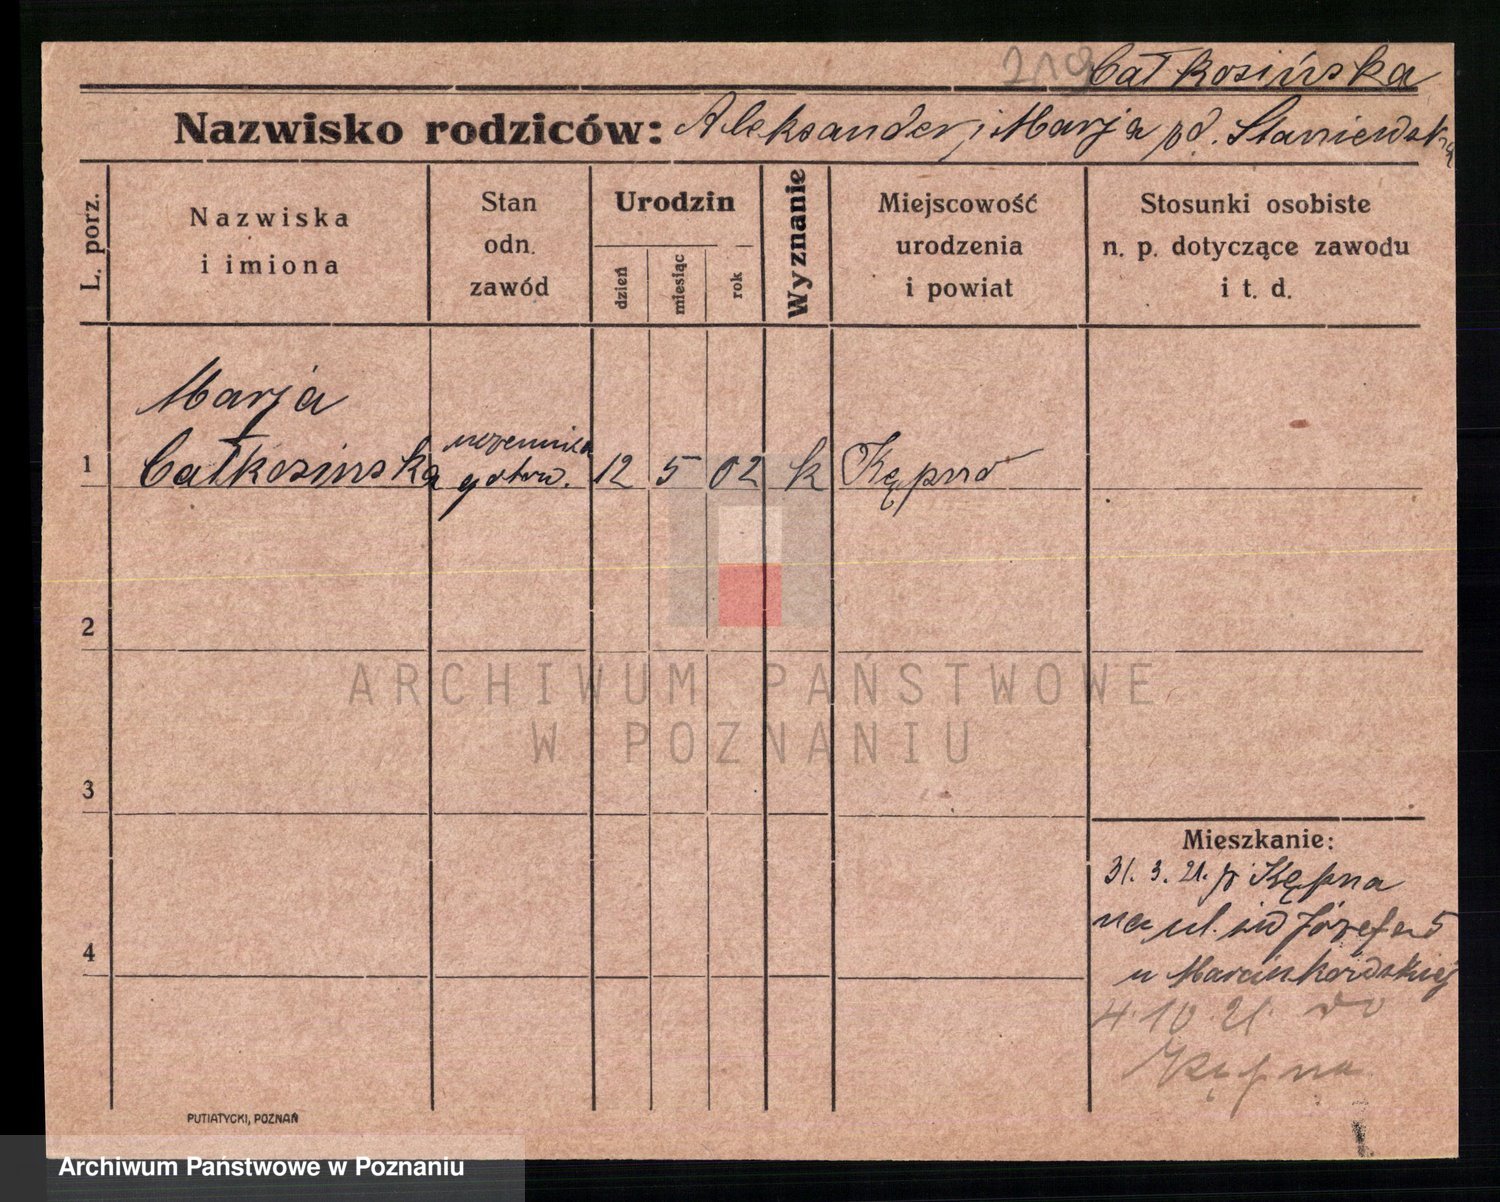 219 Całkosińska
Nazwisko rodziców: Aleksander i Marja pd. Staniewska
L. porz.
Nazwiska
i imiona
Stan
odn.
zawód
Urodzin
dzień
miesiąc
rok
Wyznanie
Miejscowość
urodzenia
i powiat
Stosunki osobiste
n. p. dotyczące zawodu
i t. d.
Marja
1 Całkosińska uczennica gotow. 12 5 02 k Kępno
2
3
4
ARCHIWUM PAŃSTWOWE
W POZNANIU
Mieszkanie:
31. 3. 21. z Kępna
na ul. św Józefa 5
u Marcinkowskiej
4. 10 21. do
Kępna
PUTIATYCKI, POZNAŃ
Archiwum Państwowe w Poznaniu